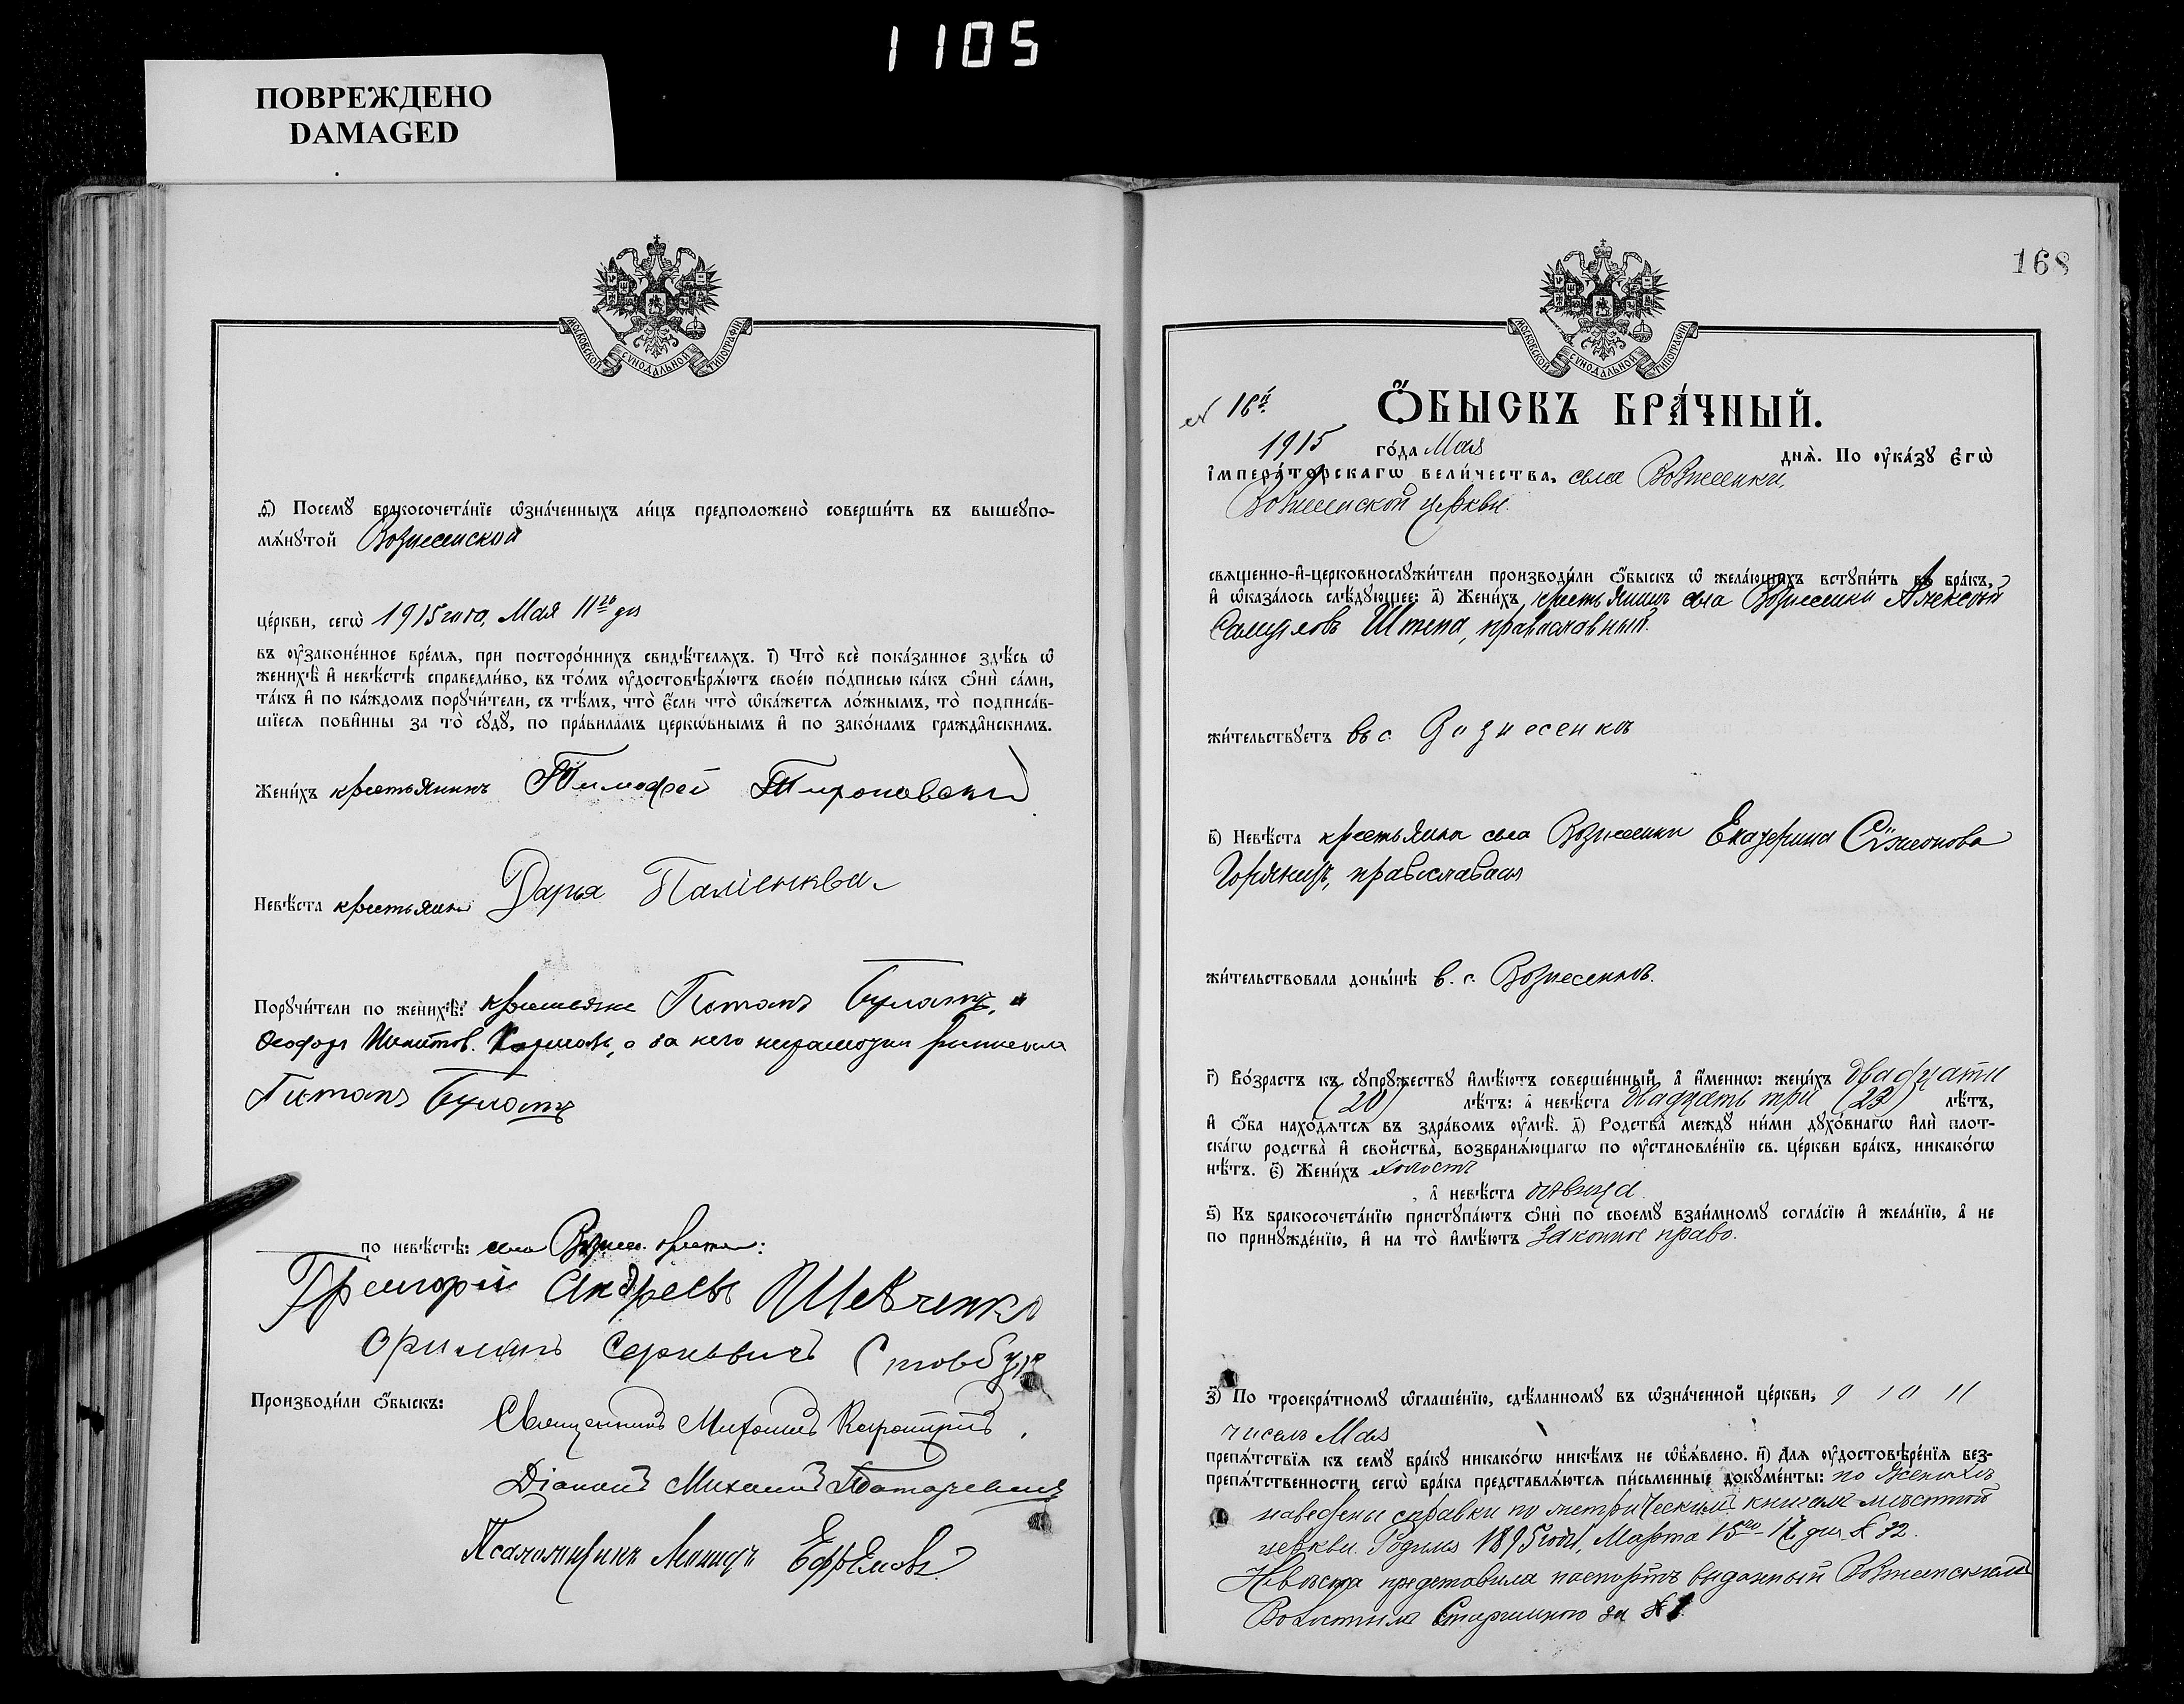 1105
ПОВРЕЖДЕНО
DAMAGED
МОСКОВСКОЙ СѴНОДАЛЬНОЙ ТИПОГРАФІИ
ѳ҃) Посемꙋ̀ бракосочета́нїе ѡ҆зна́ченныхъ ли́цъ предположено̀ соверши́ть въ вышеꙋпо-
мѧ́нꙋтой Вознесенской
це́ркви, сегѡ̀ 1915 года, Мая 11го дня
въ ᲂу҆законе́нное вре́мѧ, при посторо́ннихъ свидѣ́телѧхъ. і҃) Что̀ всѐ пока́занное здѣ́сь ѡ҆
женихѣ̀ и҆ невѣ́стѣ справедли́во, въ то́мъ ᲂу҆достовѣрѧ́ютъ свое́ю по́дписью ка́къ ѻ҆нѝ са́ми,
та́къ и҆ по ка́ждомъ порꙋчи́тели, съ тѣ́мъ, что̀ є҆́сли что̀ ѡ҆ка́жетсѧ ло́жнымъ, то̀ подписа́в-
шїесѧ пови́нны за то̀ сꙋдꙋ̀, по пра́виламъ церко́внымъ и҆ по зако́намъ гражда́нскимъ.
Жени́хъ крестьянинъ Тимофей
Невѣ́ста крестьянка Дарья
Порꙋчи́тели по женихѣ̀: крестьяне Потапъ Булатъ, и
Ѳеодоръ а за него неграмотн. росписался
Потапъ Булатъ
по невѣ́стѣ: села Вознес. крестьяне:
Григорій Андреевъ Шевченко
Сергѣевичъ Стовбуръ
Производи́ли ѻ҆́быскъ:
Священникъ Михаилъ
Діаконъ Михаилъ
Псаломщикъ Леонидъ Ефремовъ
168
МОСКОВСКОЙ СѴНОДАЛЬНОЙ ТИПОГРАФІИ
№ 16й
Ѻ҆́БЫСКЪ БРА́ЧНЫЙ.
1915 го́да Мая дня̀. По ᲂу҆ка́зꙋ Є҆гѡ̀
І҆мпера́торскагѡ вели́чества, села Вознесенки,
Вознесенской церкви.
свяще́нно-и҆-церковнослꙋжи́тели производи́ли ѻ҆́быскъ ѡ҆ жела́ющихъ встꙋпи́ть въ бра́къ,
и҆ ѡ҆каза́лось слѣ́дꙋющее: а҃) Жени́хъ, крестьянинъ села Вознесенки Алексѣй
Самуиловъ Штепа, православный.
жи́тельствꙋетъ въ с. Вознесенкѣ
в҃) Невѣ́ста крестьянка села Вознесенки Екатерина Сѵмеонова
православная
жи́тельствовала доны́нѣ в. с. Вознесенкѣ.
г҃) Во́зрастъ къ сꙋпрꙋ́жествꙋ и҆мѣ́ютъ соверше́нный, а҆ и҆́меннѡ: жени́хъ двадцати
(20) лѣ́тъ: а҆ невѣ́ста двадцать три (23) лѣ́тъ,
и҆ ѻ҆́ба нахо́дѧтсѧ въ здра́вомъ ᲂу҆мѣ̀. д҃) Родства̀ междꙋ̀ ни́ми дꙋхо́внагѡ и҆лѝ пло́т-
скагѡ родства̀ и҆ свойства̀, возбранѧ́ющагѡ по ᲂу҆становле́нїю св. це́ркви бра́къ, никако́гѡ
нѣ́тъ. є҃) Жени́хъ холостъ
, а҆ невѣ́ста дѣвица.
ѕ҃) Къ бракосочета́нїю пристꙋпа́ютъ ѻ҆нѝ по своемꙋ̀ взаи́мномꙋ согла́сїю и҆ жела́нїю, а҆ не
по принꙋжде́нїю, и҆ на то̀ и҆мѣ́ютъ законное право.
з҃) По троекра́тномꙋ ѡ҆глаше́нїю, сдѣ́ланномꙋ въ ѡ҆зна́ченной це́ркви, 9 10 11
чиселъ Мая
препѧ́тствїѧ къ семꙋ̀ бра́кꙋ никако́гѡ никѣ́мъ не ѡ҆б̾ѧ́влено. и҃) Для ᲂу҆достовѣре́нїѧ без-
препѧ́тственности сегѡ̀ бра́ка представлѧ́ютсѧ пи́сьменные докꙋме́нты: по женихѣ
наведены справки по метрическимъ книгамъ мѣстной
церкви. Родился 1895 года, Марта 15го-17 дня № 72.
Невѣста представила паспортъ выданный Вознесенскимъ
Волостнымъ Старшиною за № 1.